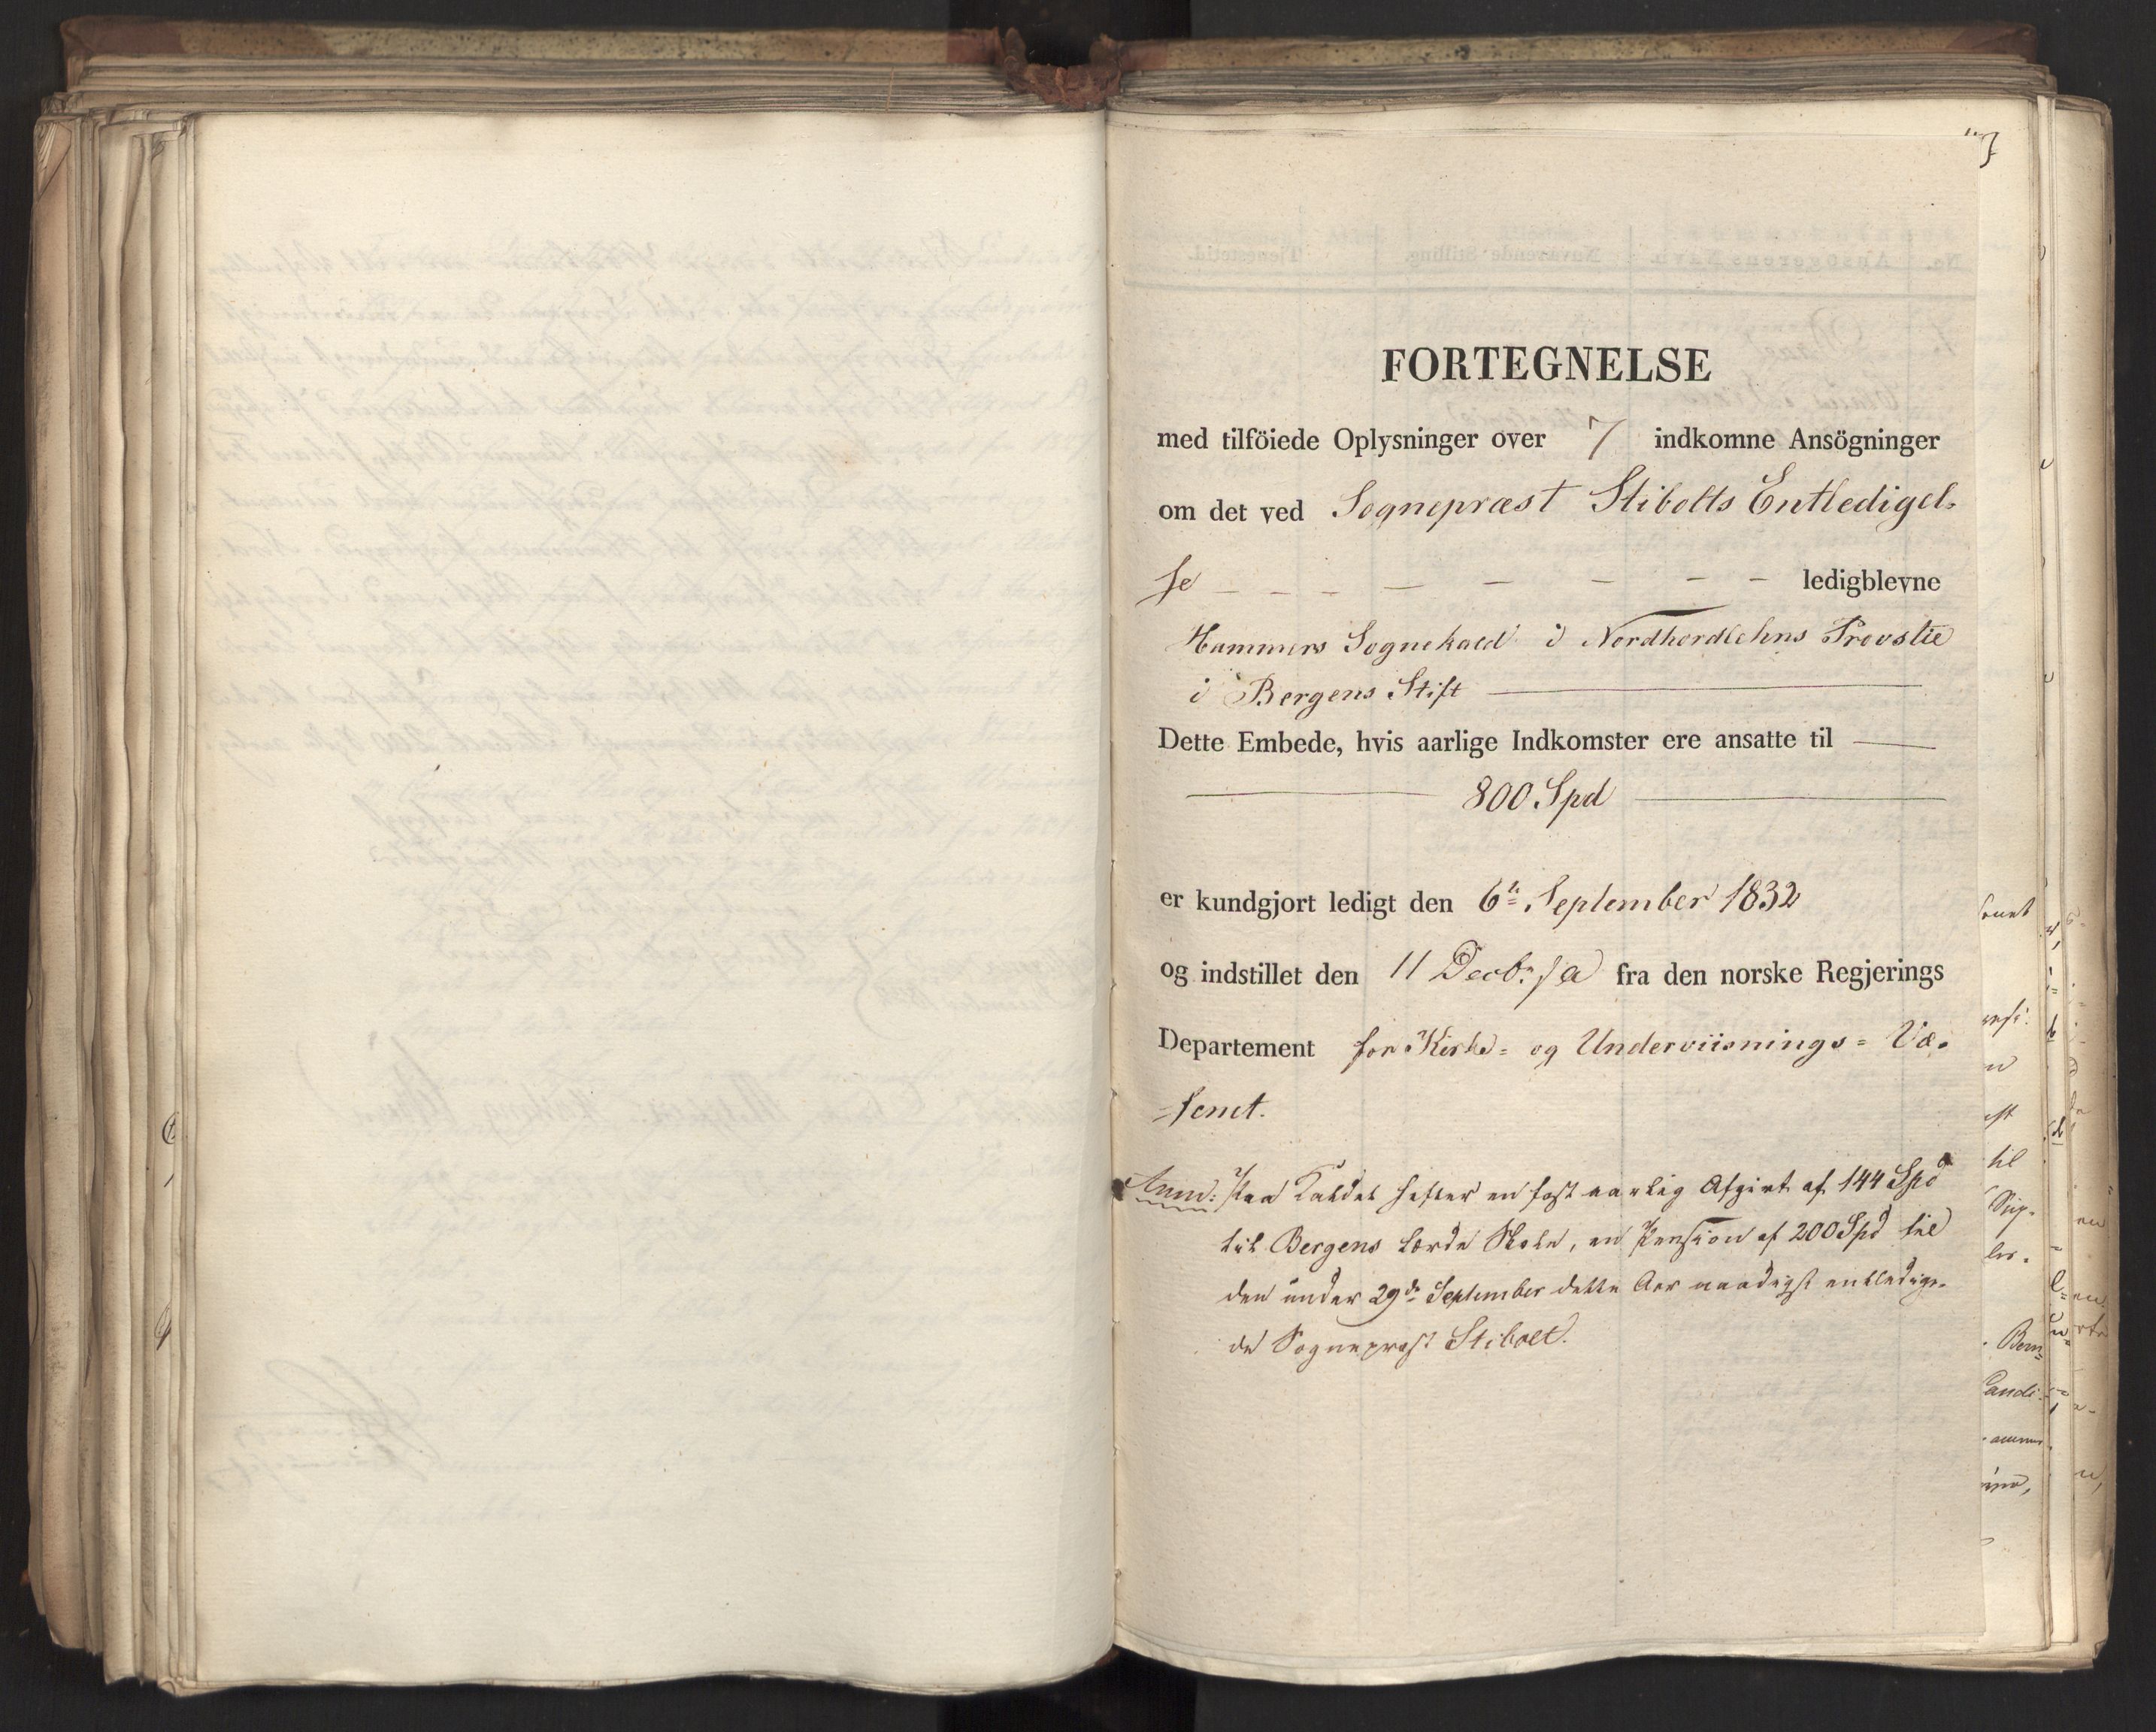 FORTEGNELSE
med tilföiede Oplysninger over 7 indkomne Ansögninger
om det ved Sognepræst Stibolts Entledigel-
se - - - - - - - - ledigblevne
Hammers Sognekald i Nordhordlehns Provstie
i Bergens Stift
Dette Embede, hvis aarlige Indkomster ere ansatte til
800 Spd
er kundgjort ledigt den 6te September 1832
og indstillet den 11 Decbr s A fra den norske Regjerings
Departement for Kirke- og Underviisnings- Væ-
senet.
Anm: Paa Kaldet hefter en fast aarlig Afgivt af 144 Spd
til Bergens lærde Skole, en Pension af 200 Spd til
den under 29de September dette Aar naadigst entledige-
de Sognepræst Stibolt.